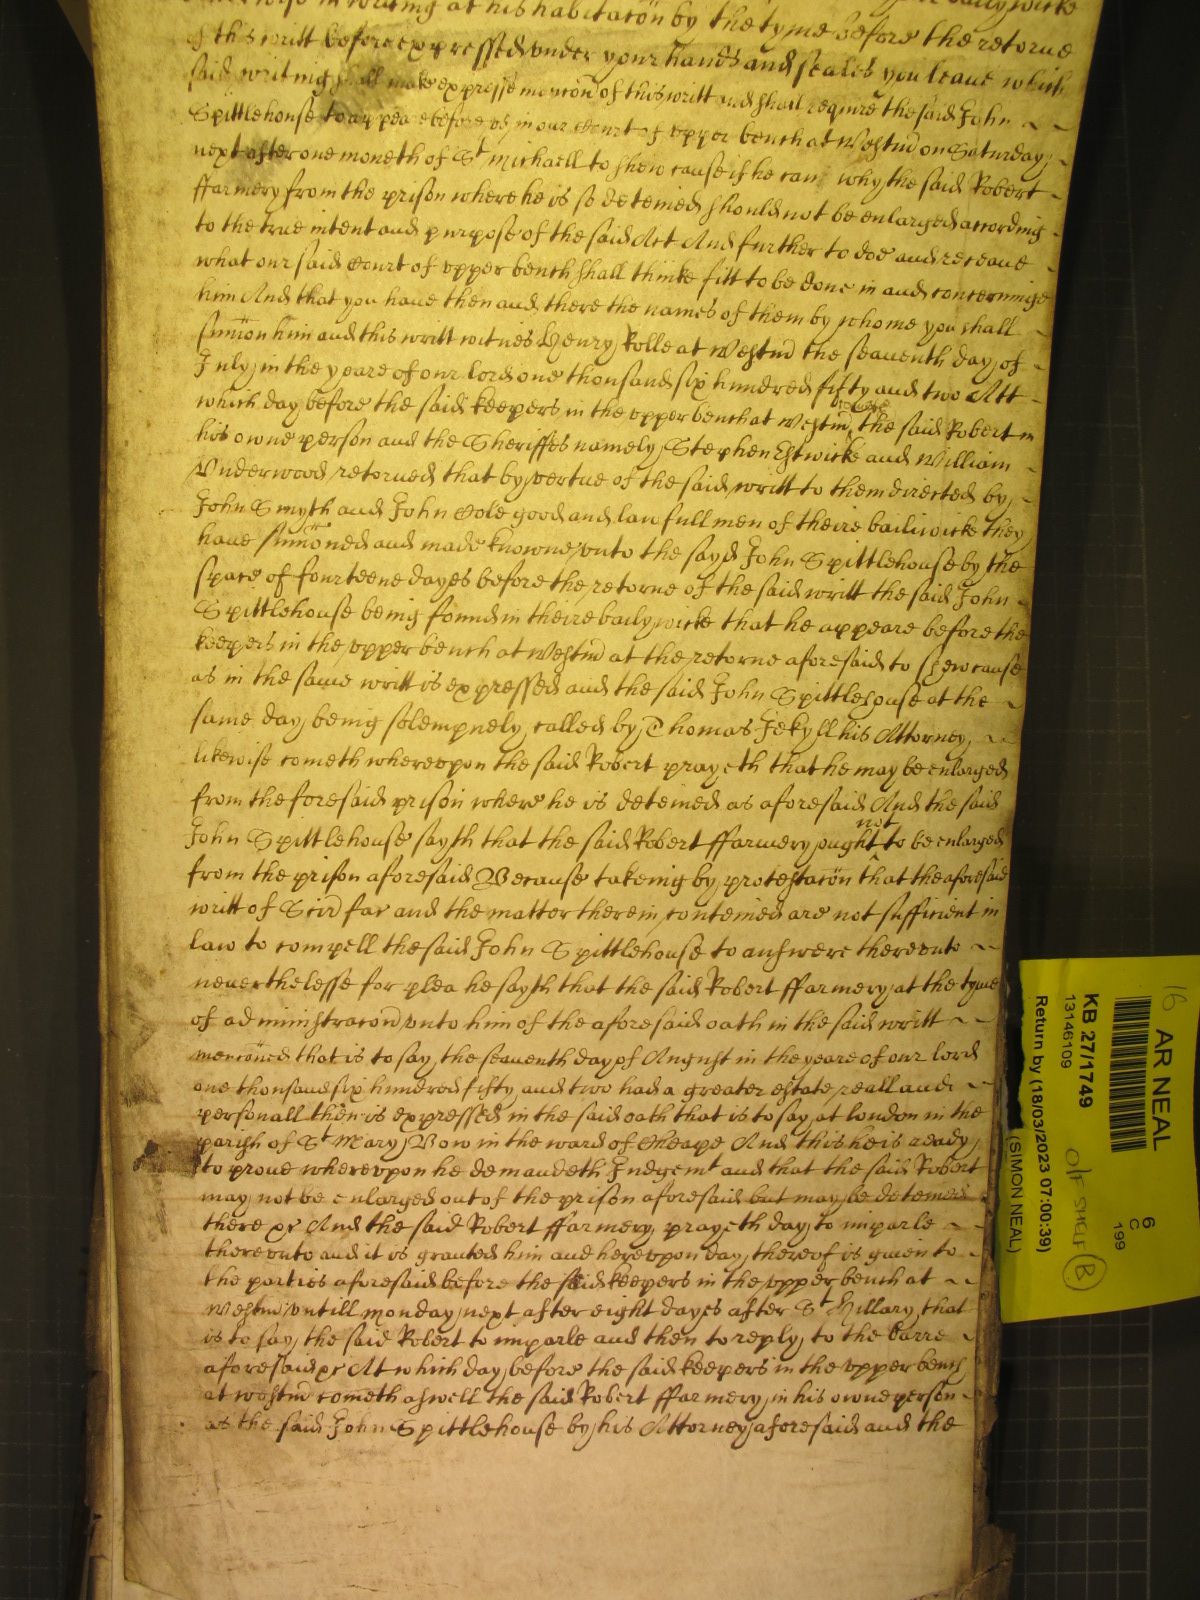 in writing at his habitacōn by the tyme before the retorne
of this writt before expressed under your hands and seales you leave which
said writing shall make expresse mencōn of this writt and shall require the said John
Spittlehouse to appeare before us in our Court of upper bench at Westm̄ on Saturday
next after one moneth of St Michaell to shew cause if he can why the said Robert
ffarmery from the prison where he is so deteined should not be enlarged according
to the true intent and purpose of the said Act And further to doe and receave
what our said Court of upper bench shall thinke fitt to be done in and concerninge
him And that you have then and there the names of them by whome you shall
sum̄on him and this writt witnes Henry Rolle at Westm̄ the seaventh day of
July in the yeare of our lord one thousand six hundred fifty and two Att
which day before the said keepers in the upper bench at Westm̄ cometh the said Robert in
his owne person and the Sheriffes namely Stephen Estwicke and William
Underwood retorned that by vertue of the said writt to them directed by
John Smyth and John Cole good and lawfull men of theire bailiwicke they
have sum̄oned and made knowne unto the sayd John Spittlehouse by the
space of fourteene dayes before the retorne of the said writt the said John
Spittlehouse being found in theire bailywicke that he appeare before the
keepers in the upper bench at Westm̄ at the retorne aforesaid to shew cause
as in the same writt is expressed and the said John Spittlehouse at the
same day being solempnely called by Thomas Jekyll his Attorney
likewise cometh whereupon the said Robert prayeth that he may be enlarged
from the foresaid prison where he is deteined as aforesaid And the said
John Spittlehouse sayth that the said Robert ffarmery ought not to be enlarged
from the prison aforesaid Because takeing by protestacōn that the aforesaid
writt of Scir̄ fac̄ and the matter therein conteined are not sufficient in
law to compell the said John Spittlehouse to answere thereunto
neverthelesse for plea he sayth that the said Robert ffarmery at the tyme
of administracōn unto him of the aforesaid oath in the said writt
mencōned that is to say the seaventh day of August in the yeare of our lord
one thousand six hundred fifty and two had a greater estate reall and
personall then is expressed in the said oath that is to say at london in the
parish of St Mary Bow in the ward of Cheape And this he is ready
to prove whereupon he demaundeth Judgemt and that the said Robert
may not be enlarged out of the prison aforesaid but may be deteined
there &c And the said Robert ffarmery prayeth day to imparle
thereunto and it is granted him and hereupon day thereof is given to
the parties aforesaid before the said keepers in the upper bench at
Westm̄ untill Monday next after eight dayes after St Hillary that
is to say the said Robert to imparle and then to reply to the barre
aforesaid &c At which day before the said keepers in the upper bench
at westm̄ cometh aswell the said Robert ffarmery in his owne person
as the said John Spittlehouse by his Attorney aforesaid and the
16
AR NEAL
KB 27/1749
13146109
Return by (18/03/2023 07:00:39)
(SIMON NEAL)
O/F SHELF B
6
C
199